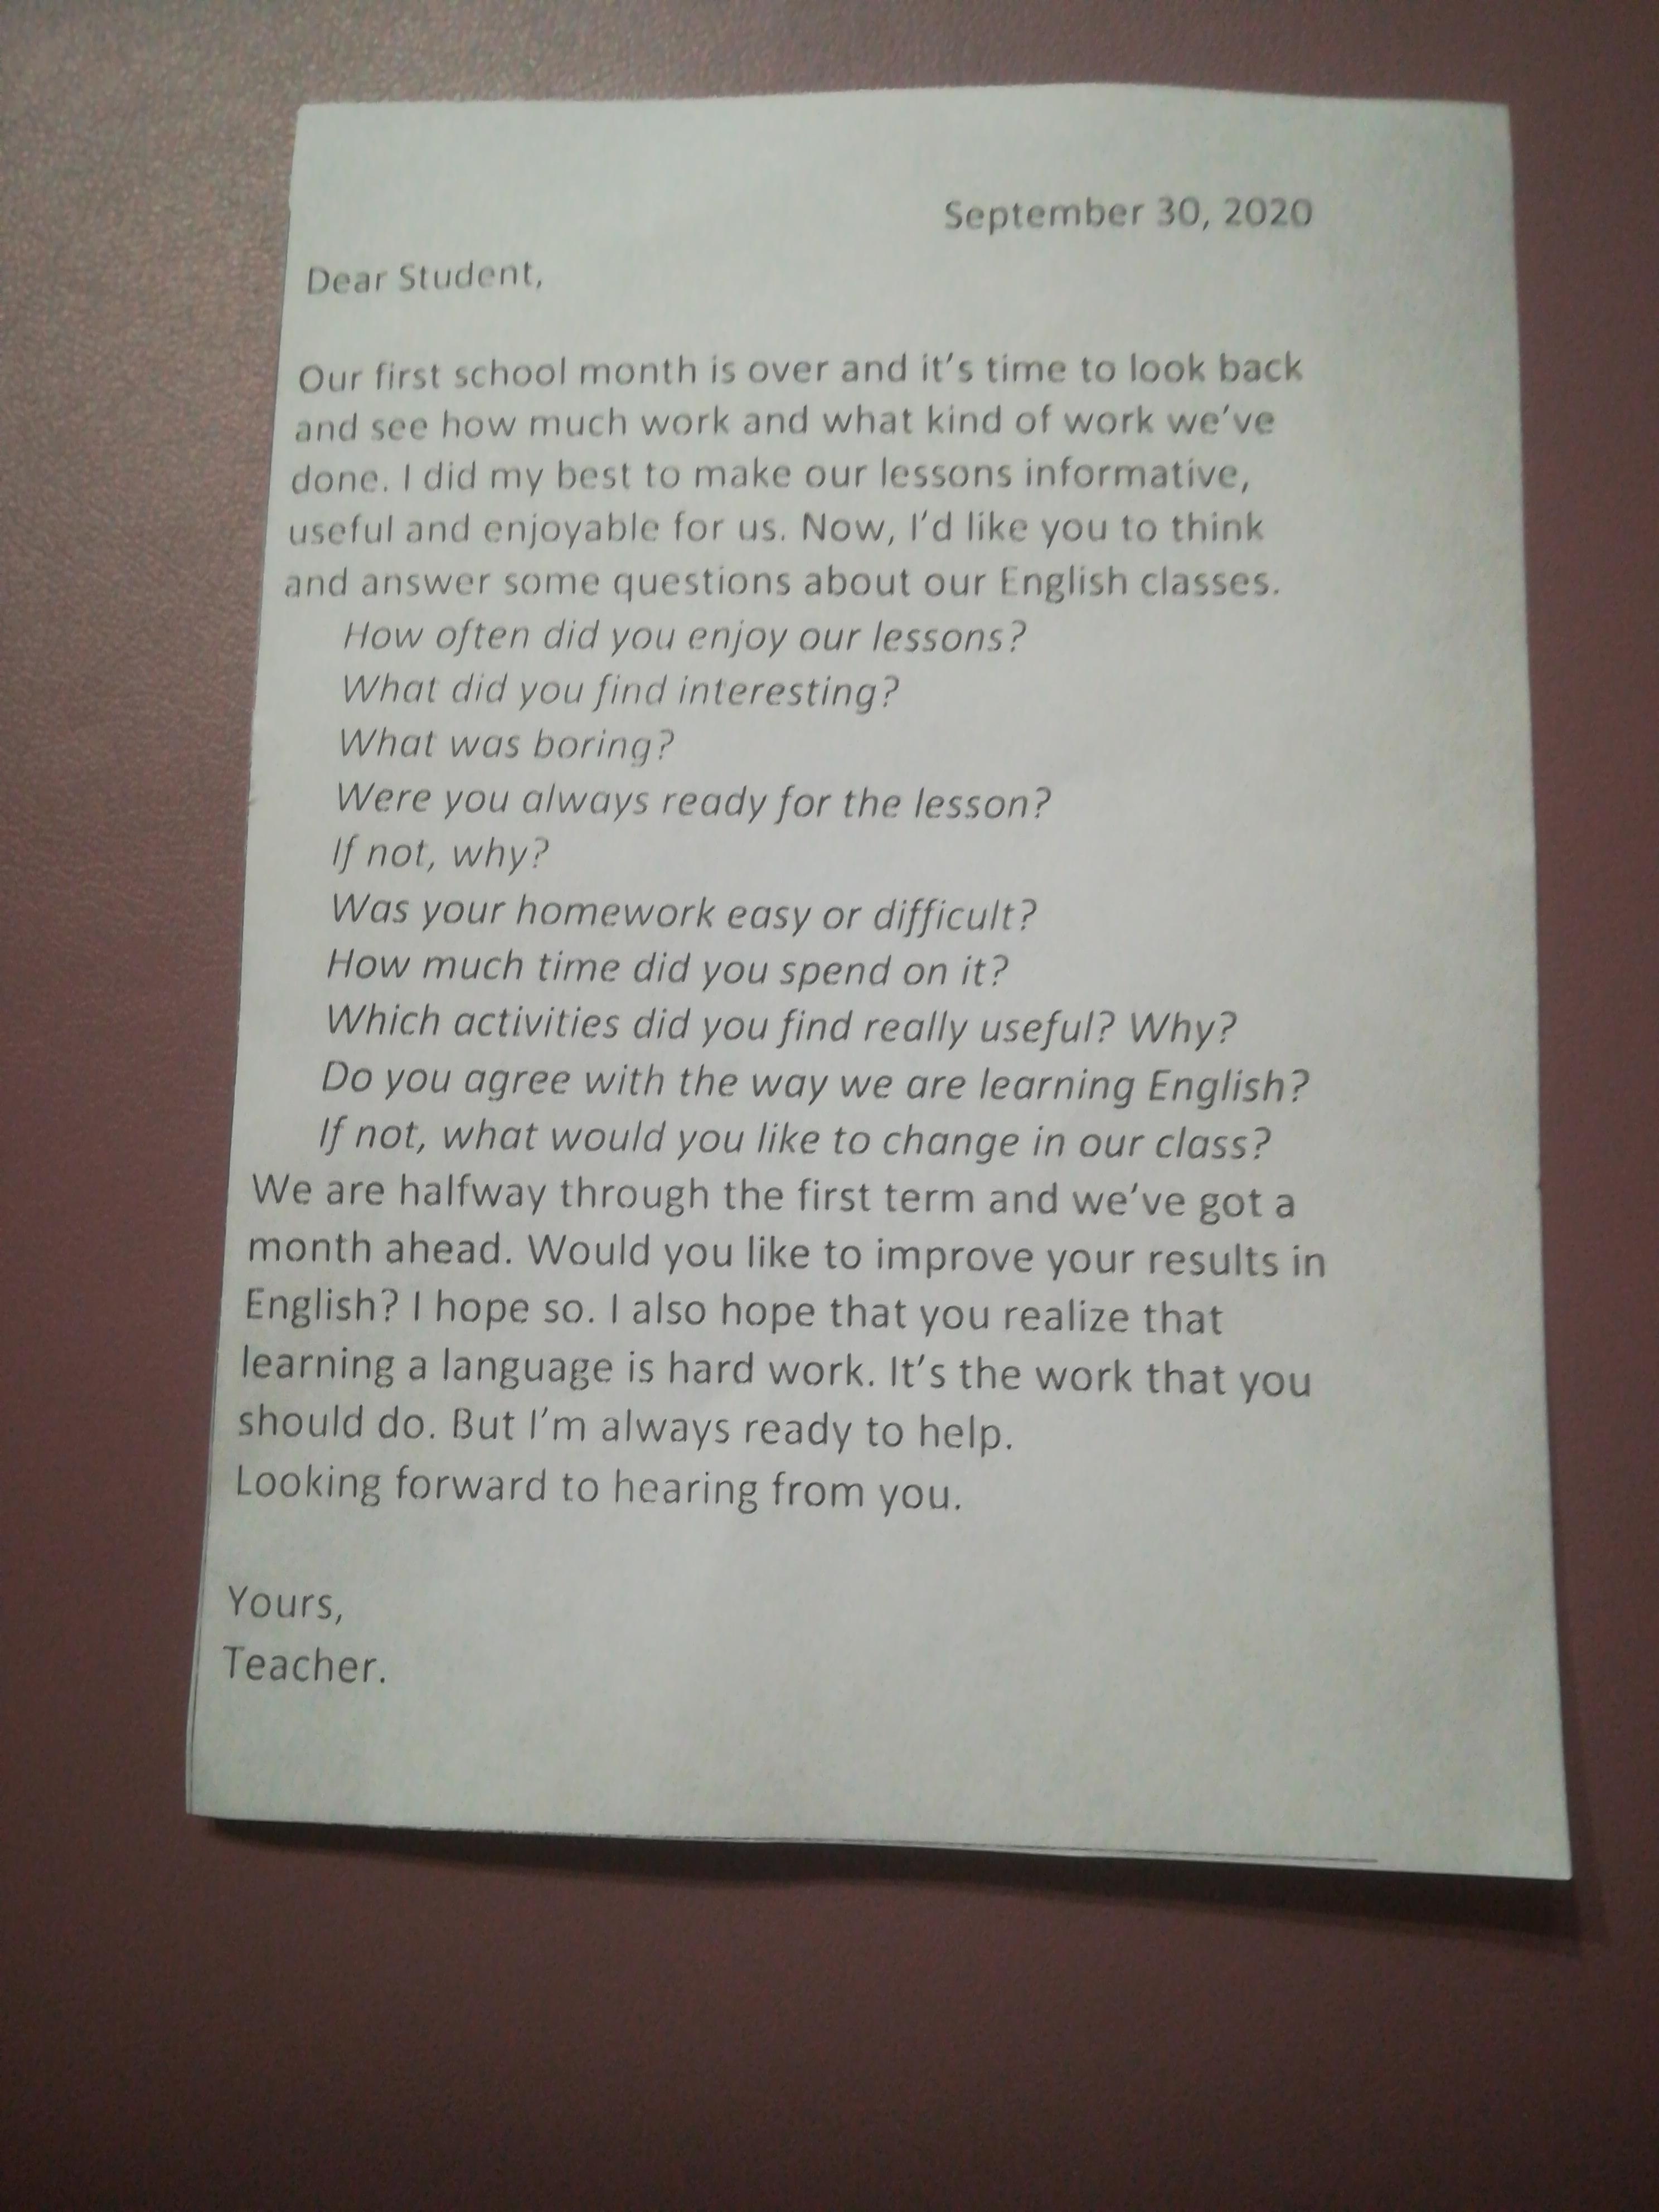 September 30, 2020
Dear Student,
Our first school month is over and it's time to look back
and see how much work and what kind of work we've
done. I did my best to make our lessons informative,
useful and enjoyable for us. Now, I'd like you to think
and answer some questions about our English classes.
How often did you enjoy our lessons?
What did you find interesting?
What was boring?
Were you always ready for the lesson?
If not, why?
Was your homework easy or difficult?
How much time did you spend on it?
Which activities did you find really useful? Why?
Do you agree with the way we are learning English?
If not, what would you like to change in our class?
We are halfway through the first term and we've got a
month ahead. Would you like to improve your results in
English? I hope so. I also hope that you realize that
learning a language is hard work. It's the work that you
should do. But I'm always ready to help.
Looking forward to hearing from you.
Yours,
Teacher.